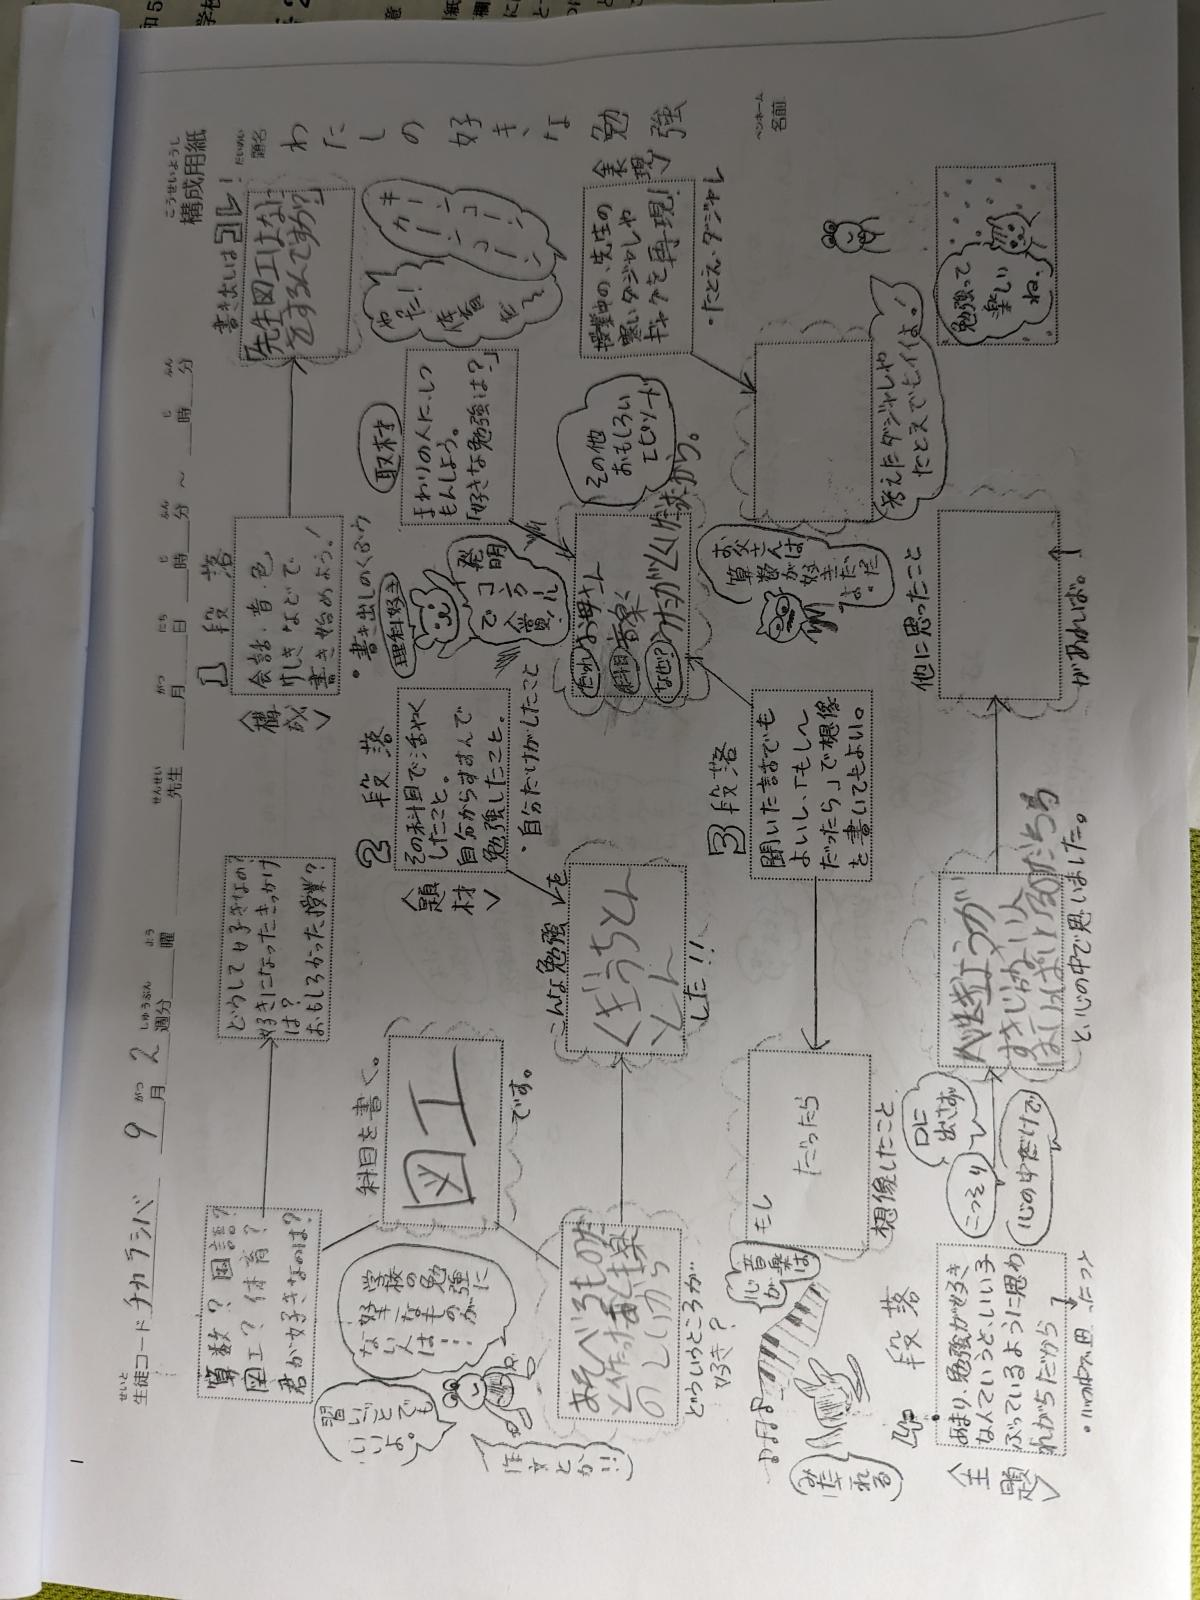 構成用紙
こうせいようし
題名
だいめい
わたしの好きな勉強
ペンネーム
名前
生徒コード チカラシバ 9月2週分 曜 先生 月 日 時 分 ～ 時 分
1段落
〈構成〉
会話・音・色
けしきなどで
書き始めよう!
・書き出しのくふう
書き出しはコレ!
「先生図工はなに
をするんですか?」
算数?国語?
図工?体育?
君が好きなのは?
どうして好きなの?
好きになったきっかけ
は?
おもしろかった授業?
科目を書く。
図工
です。
学校の勉強に
好きなものが
ない人は…
習いごとでも
いいよ。
作文とか!!
やった!
体育
だ!
キーンコーン
カーンコーン
2段落
〈題材〉
その科目で活やく
したこと。
自分からすすんで
勉強したこと。
・自分だけがしたこと
あそべるものな
ど作ってあと楽
のしいから
どういうところが
好き?
こんな勉強を
くぎうちとん
とん
した!!
理科好き
発明
でコンクール
入賞!
取材
まわりの人にしつ
もんしよう。
「好きな勉強は?」
だれ お母さん
科目 音楽
なぜ?
だから。
その他
おもしろい
エピソード
〈表現〉
授業中の、先生の
寒いダジャレや
ギャグを再現!
・たとえ・ダジャレ
考えたダジャレや
たとえでもイイよ!
3段落
聞いた話でも
よいし、「もし〜
だったら」で想像
を書いてもよい。
お父さんは
算数が
好きだっ
たよ。
もし
だったら
想像したこと
音楽は
心が
みだ
れる
4段落
〈主題〉
あまり、勉強が好き
なんていうと、いい子
ぶっているように思わ
れがちだから
こっそり
口に
出さず
心の中だけで
べんきょうが
と、心の中で思いました。
他に思ったこと
があれば。
勉強って
楽しい
ね。
1